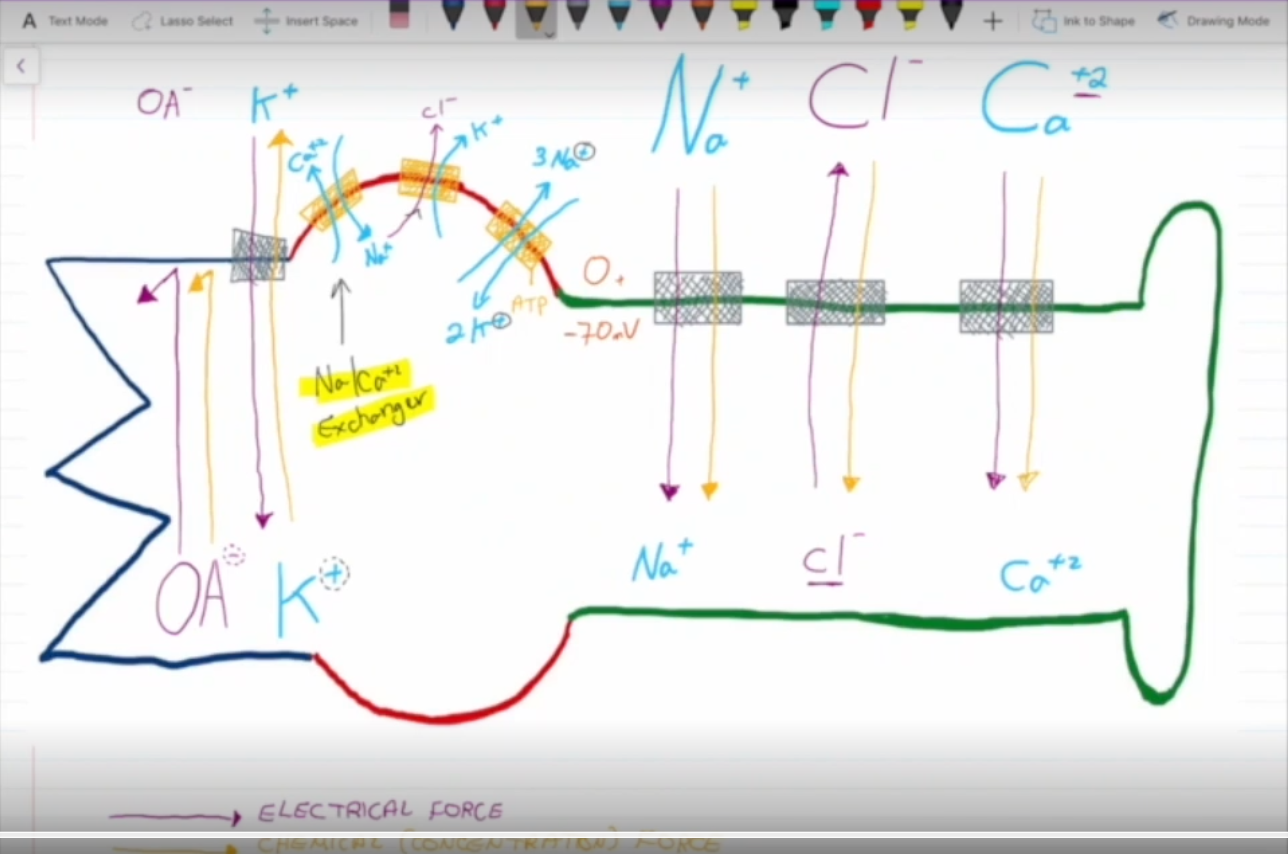 Text Mode
Lasso Select
Insert Space
Ink to Shape
Drawing Mode
OA⁻
K⁺
Ca⁺²
Na⁺
Cl⁻
K⁺
3 Na⁺
2 K⁺
ATP
O₊
-70mV
Na⁺
Cl⁻
Ca⁺²
Na/Ca⁺²
Exchanger
OA⁻
K⁺
Na⁺
Cl⁻
Ca⁺²
ELECTRICAL FORCE
CHEMICAL (CONCENTRATION) FORCE